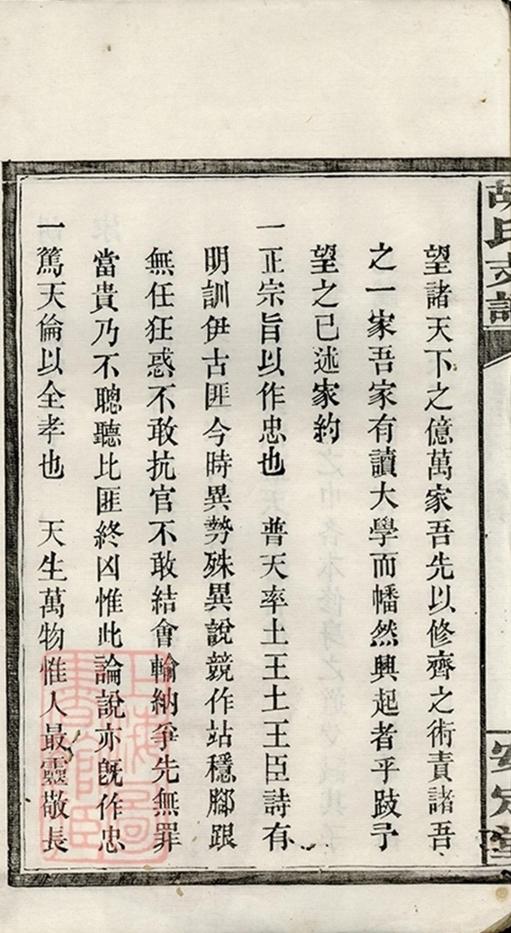 胡氏支譜
安定堂
望諸天下之億萬家吾先以修齊之術責諸吾
之一家吾家有讀大學而幡然興起者乎跂予
望之已述家約
一正宗旨以作忠也 普天率土王土王臣詩有
明訓伊古匪今時異勢殊異說競作站穩腳跟
無任狂惑不敢抗官不敢結會輸納爭先無罪
當貴乃不聰聽比匪終凶惟此論說亦旣作忠
一篤天倫以全孝也 天生萬物惟人最靈敬長
上海圖書館藏